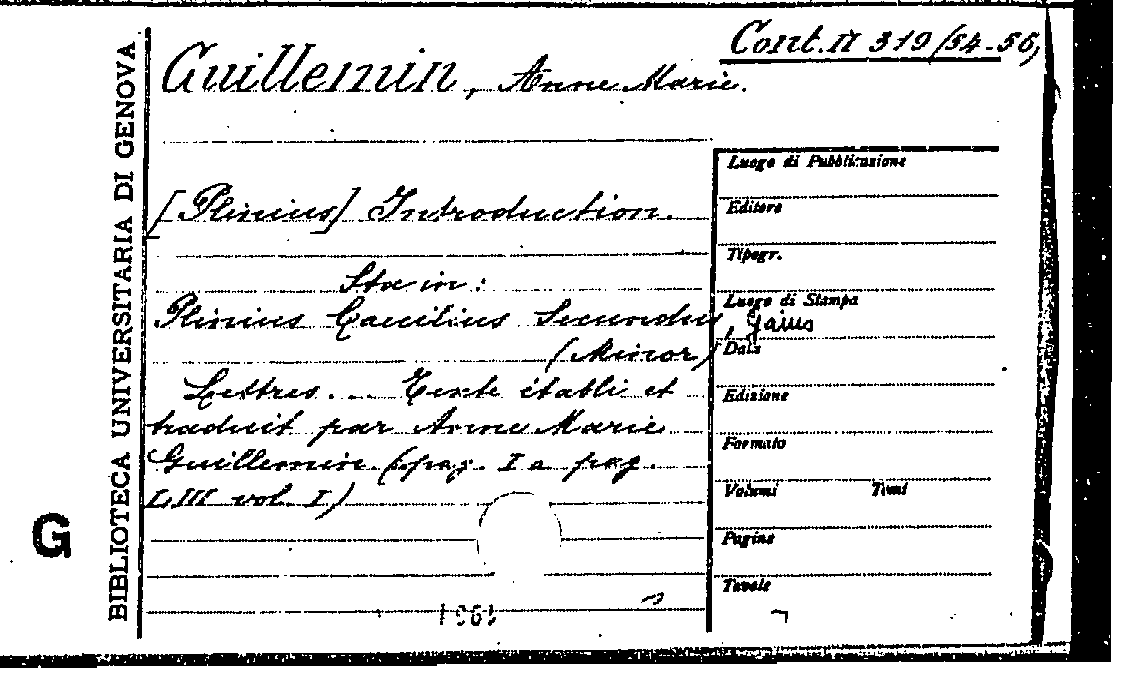 Cont. N 319/54-56,
Guillemin, Anne Marie.
[Plinius] Introduction.
Sta in:
Plinius Caecilius Secundus, Gaius
(Minor)
Lettres.... Texte établi et
traduit par Anne Marie
Guillemin (pag. I a pag.
LIII vol. I)
Luogo di Pubblicazione
Editore
Tipogr.
Luogo di Stampa
Data
Edizione
Formato
Volumi Tomi
Pagine
Tavole
BIBLIOTECA UNIVERSITARIA DI GENOVA
G